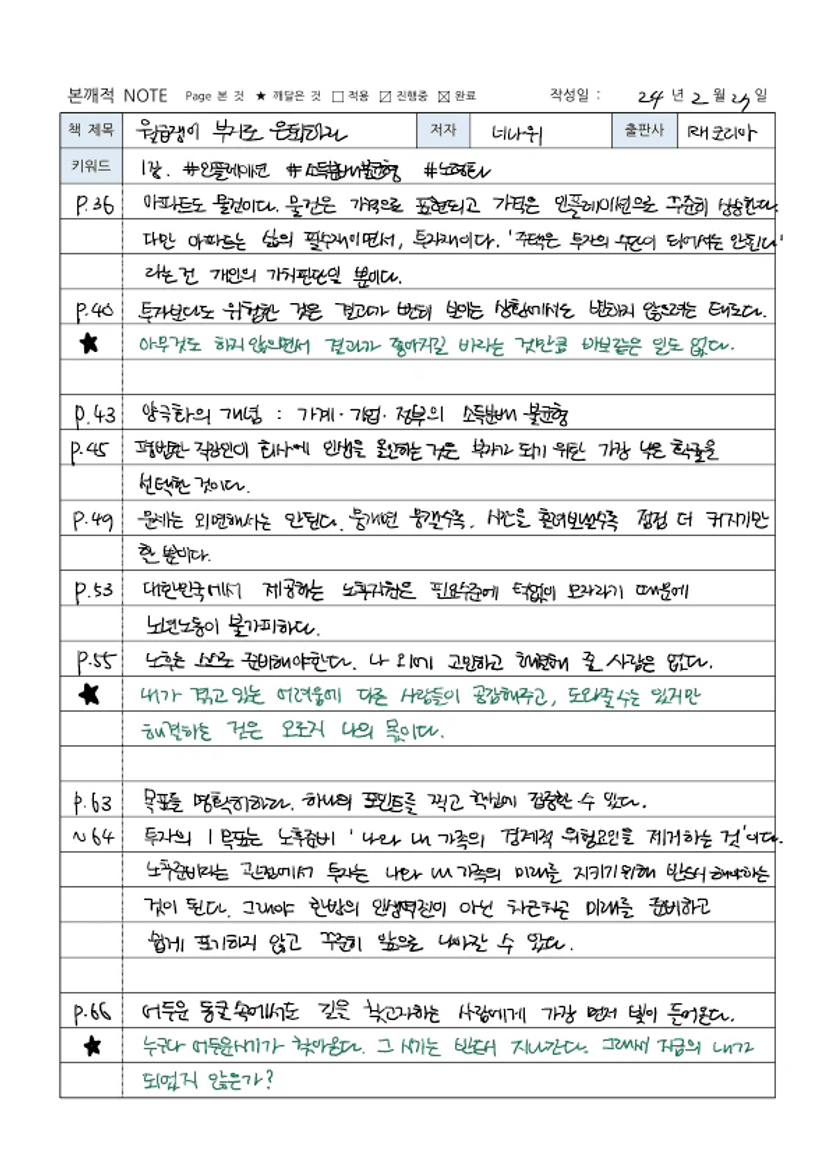 본깨적 NOTE Page 본 것 ★ 깨달은 것 □ 적용 ☑ 진행중 ☒ 완료 작성일 : 24 년 2 월 일
책 제목 월급쟁이 부자로 은퇴하라 저자 너나위 출판사 RH코리아
키워드 1장. #인플레이션 #소득분배불균형 #노령화
P.36 아파트도 물건이다. 물건은 가격으로 표현되고 가격은 인플레이션으로 꾸준히 상승한다.
다만 아파트는 삶의 필수재이면서, 투자재이다. '주택은 투자의 수단이 되어서는 안된다'
라는건 개인의 가치판단일 뿐이다.
p.40 투자보다도 위험한 것은 결과가 뻔히 보이는 상황에서도 변하지 않으려는 태도다.
★ 아무것도 하지않으면서 결과가 좋아지길 바라는 것만큼 바보같은 일도 없다.
p.43 양극화의 개념 : 가계·기업·정부의 소득분배 불균형
p.45 평범한 직장인이 회사에 인생을 올인하는것은 부자가 되기 위한 가장 낮은 확률을
선택한 것이다.
p.49 문제는 외면해서는 안된다. 뭉개면 뭉갤수록, 시간을 흘려보낼수록 점점 더 커지기만
할 뿐이다.
p.53 대한민국에서 제공하는 노후자원은 필요수준에 턱없이 모자라기 때문에
노년노동이 불가피하다.
p.55 노후는 스스로 준비해야한다. 나 외에 고민하고 해결해 줄 사람은 없다.
★ 내가 겪고 있는 어려움에 다른 사람들이 공감해주고, 도와줄수는 있지만
해결하는 것은 오로지 나의 몫이다.
p.63 목표를 명확히하라. 하나의 포인트를 찍고 핵심에 집중할 수 있다.
~64 투자의 1 목표는 노후준비 '나와 내 가족의 경제적 위험요인을 제거하는 것'이다.
노후준비라는 관점에서 투자는 나와 내 가족의 미래를 지키기위해 반드시 해야하는
것이 된다. 그래야 한방의 인생역전이 아닌 차근차근 미래를 준비하고
쉽게 포기하지 않고 꾸준히 앞으로 나아갈 수 있다.
p.66 어두운 동굴속에서도 길을 찾고자하는 사람에게 가장 먼저 빛이 들어온다.
★ 누구나 어두운시기가 찾아온다. 그 시기는 반드시 지나간다. 그래서 지금의 내가
되었지 않은가?